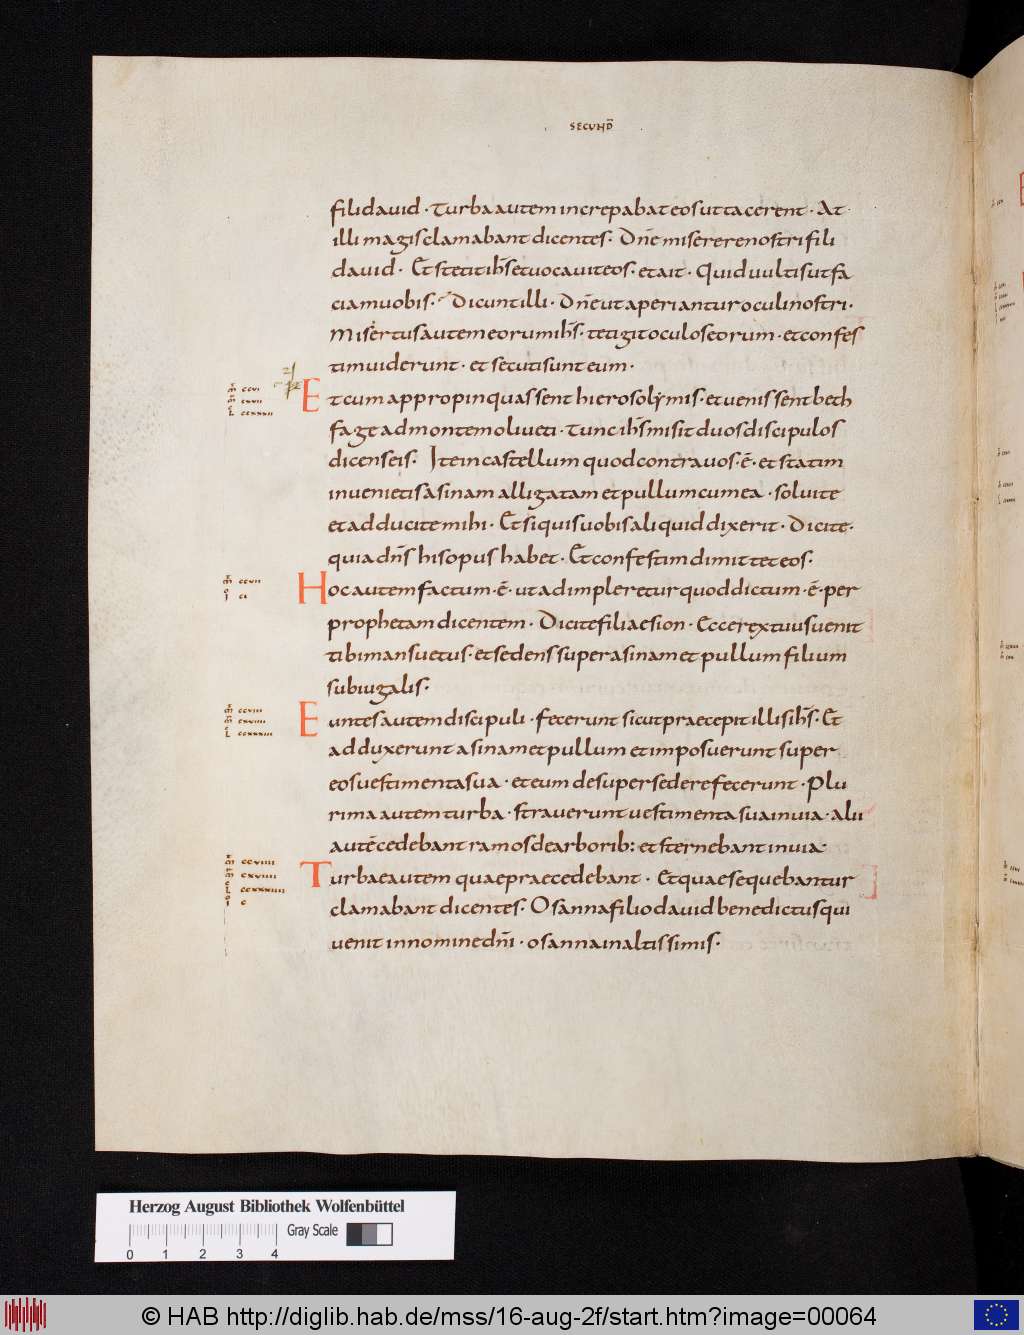 SECUND̄
fili dauid · Turba autem increpabat eos ut tacerent · At
illi magis clamabant dicentes · Dn̄e miserere nostri fili
dauid · Et stetit ih̄s et uocauit eos · et ait · Quid uultis ut fa
ciam uobis · Dicunt illi · Dn̄e ut aperiantur oculi nostri ·
Misertus autem eorum ih̄s · tetigit oculos eorum · et confes
tim uiderunt · et secuti sunt eum ·
m̄ ccvi
m̄ cxvii
l ccxxxii
Et cum appropinquassent hierosolymis · et uenissent beth
fage ad montem oliueti · Tunc ih̄s misit duos discipulos
dicens eis · Ite in castellum quod contra uos · ē · et statim
inuenietis asinam alligatam et pullum cum ea · soluite
et adducite mihi · Et si quis uobis aliquid dixerit · Dicite ·
quia dn̄s his opus habet · Et confestim dimittet eos ·
m̄ ccvii
i ci
Hoc autem factum · ē · ut adimpleretur quod dictum · ē · per
prophetam dicentem · Dicite filiae sion · Ecce rex tuus uenit
tibi mansuetus · et sedens super asinam et pullum filium
subiugalis ·
m̄ ccviii
m̄ cxviiii
l ccxxxiii
Euntes autem discipuli · fecerunt sicut praecepit illis ih̄s · Et
adduxerunt asinam et pullum et imposuerunt super
eos uestimenta sua · et eum desuper sedere fecerunt · Plu
rima autem turba · strauerunt uestimenta sua in uia · alii
autē cedebant ramos de arborib: et sternebant in uia
m̄ ccviiii
m̄ cxviiii
l ccxxxiiii
i c
Turbae autem quae praecedebant · Et quae sequebantur
clamabant dicentes · Osanna filio dauid benedictus qui
uenit in nomine dn̄i · osanna in altissimis ·
Herzog August Bibliothek Wolfenbüttel
Gray Scale
0 1 2 3 4
© HAB http://diglib.hab.de/mss/16-aug-2f/start.htm?image=00064